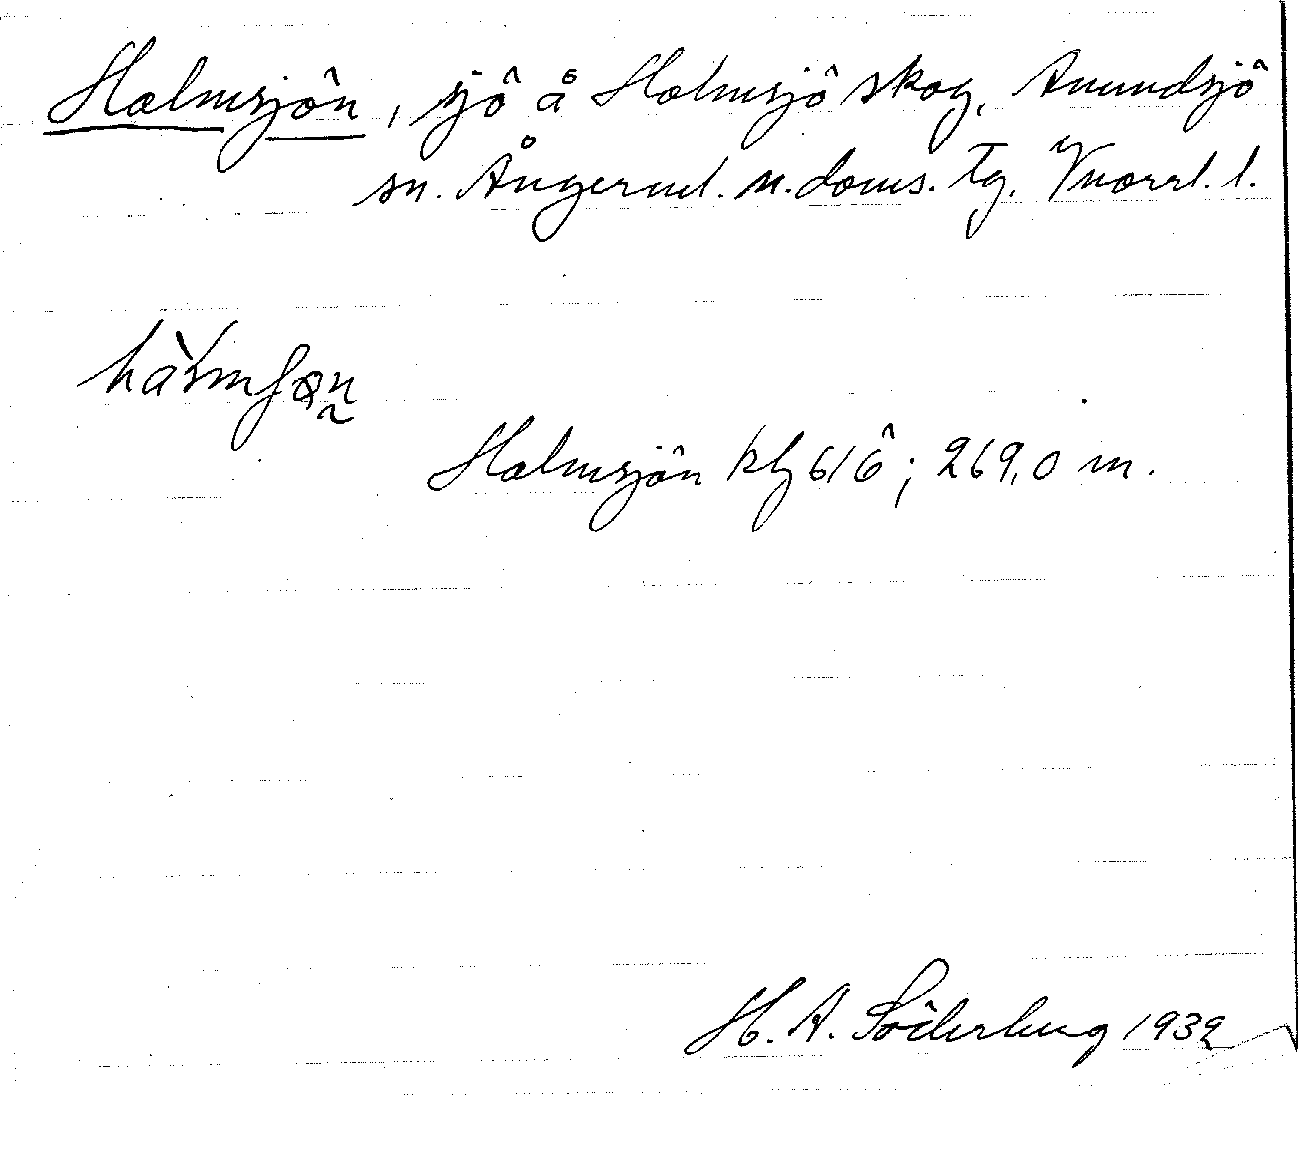 Holmsjön, sjö å Holmsjö skog, Anundsjö
sn. Ångerml. n. doms. tg. Vnorrl. l.
Holmsjön kbl 61ö; 269,0 m.
H. A. Söderberg 1932